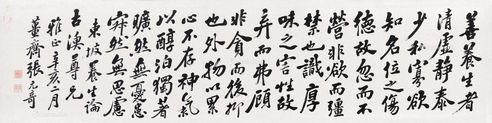 善養生者
清虛靜泰
少私寡欲
知名位之傷
德故忽而不
營非欲而彊
禁也識厚
味之害性故
棄而弗顧
非貪而後抑
也外物以累
心不存神氣
以醇泊獨著
曠然無憂患
寂然無思慮
東坡養生論
古澳尊兄
雅正辛亥二月
薑齋張元奇